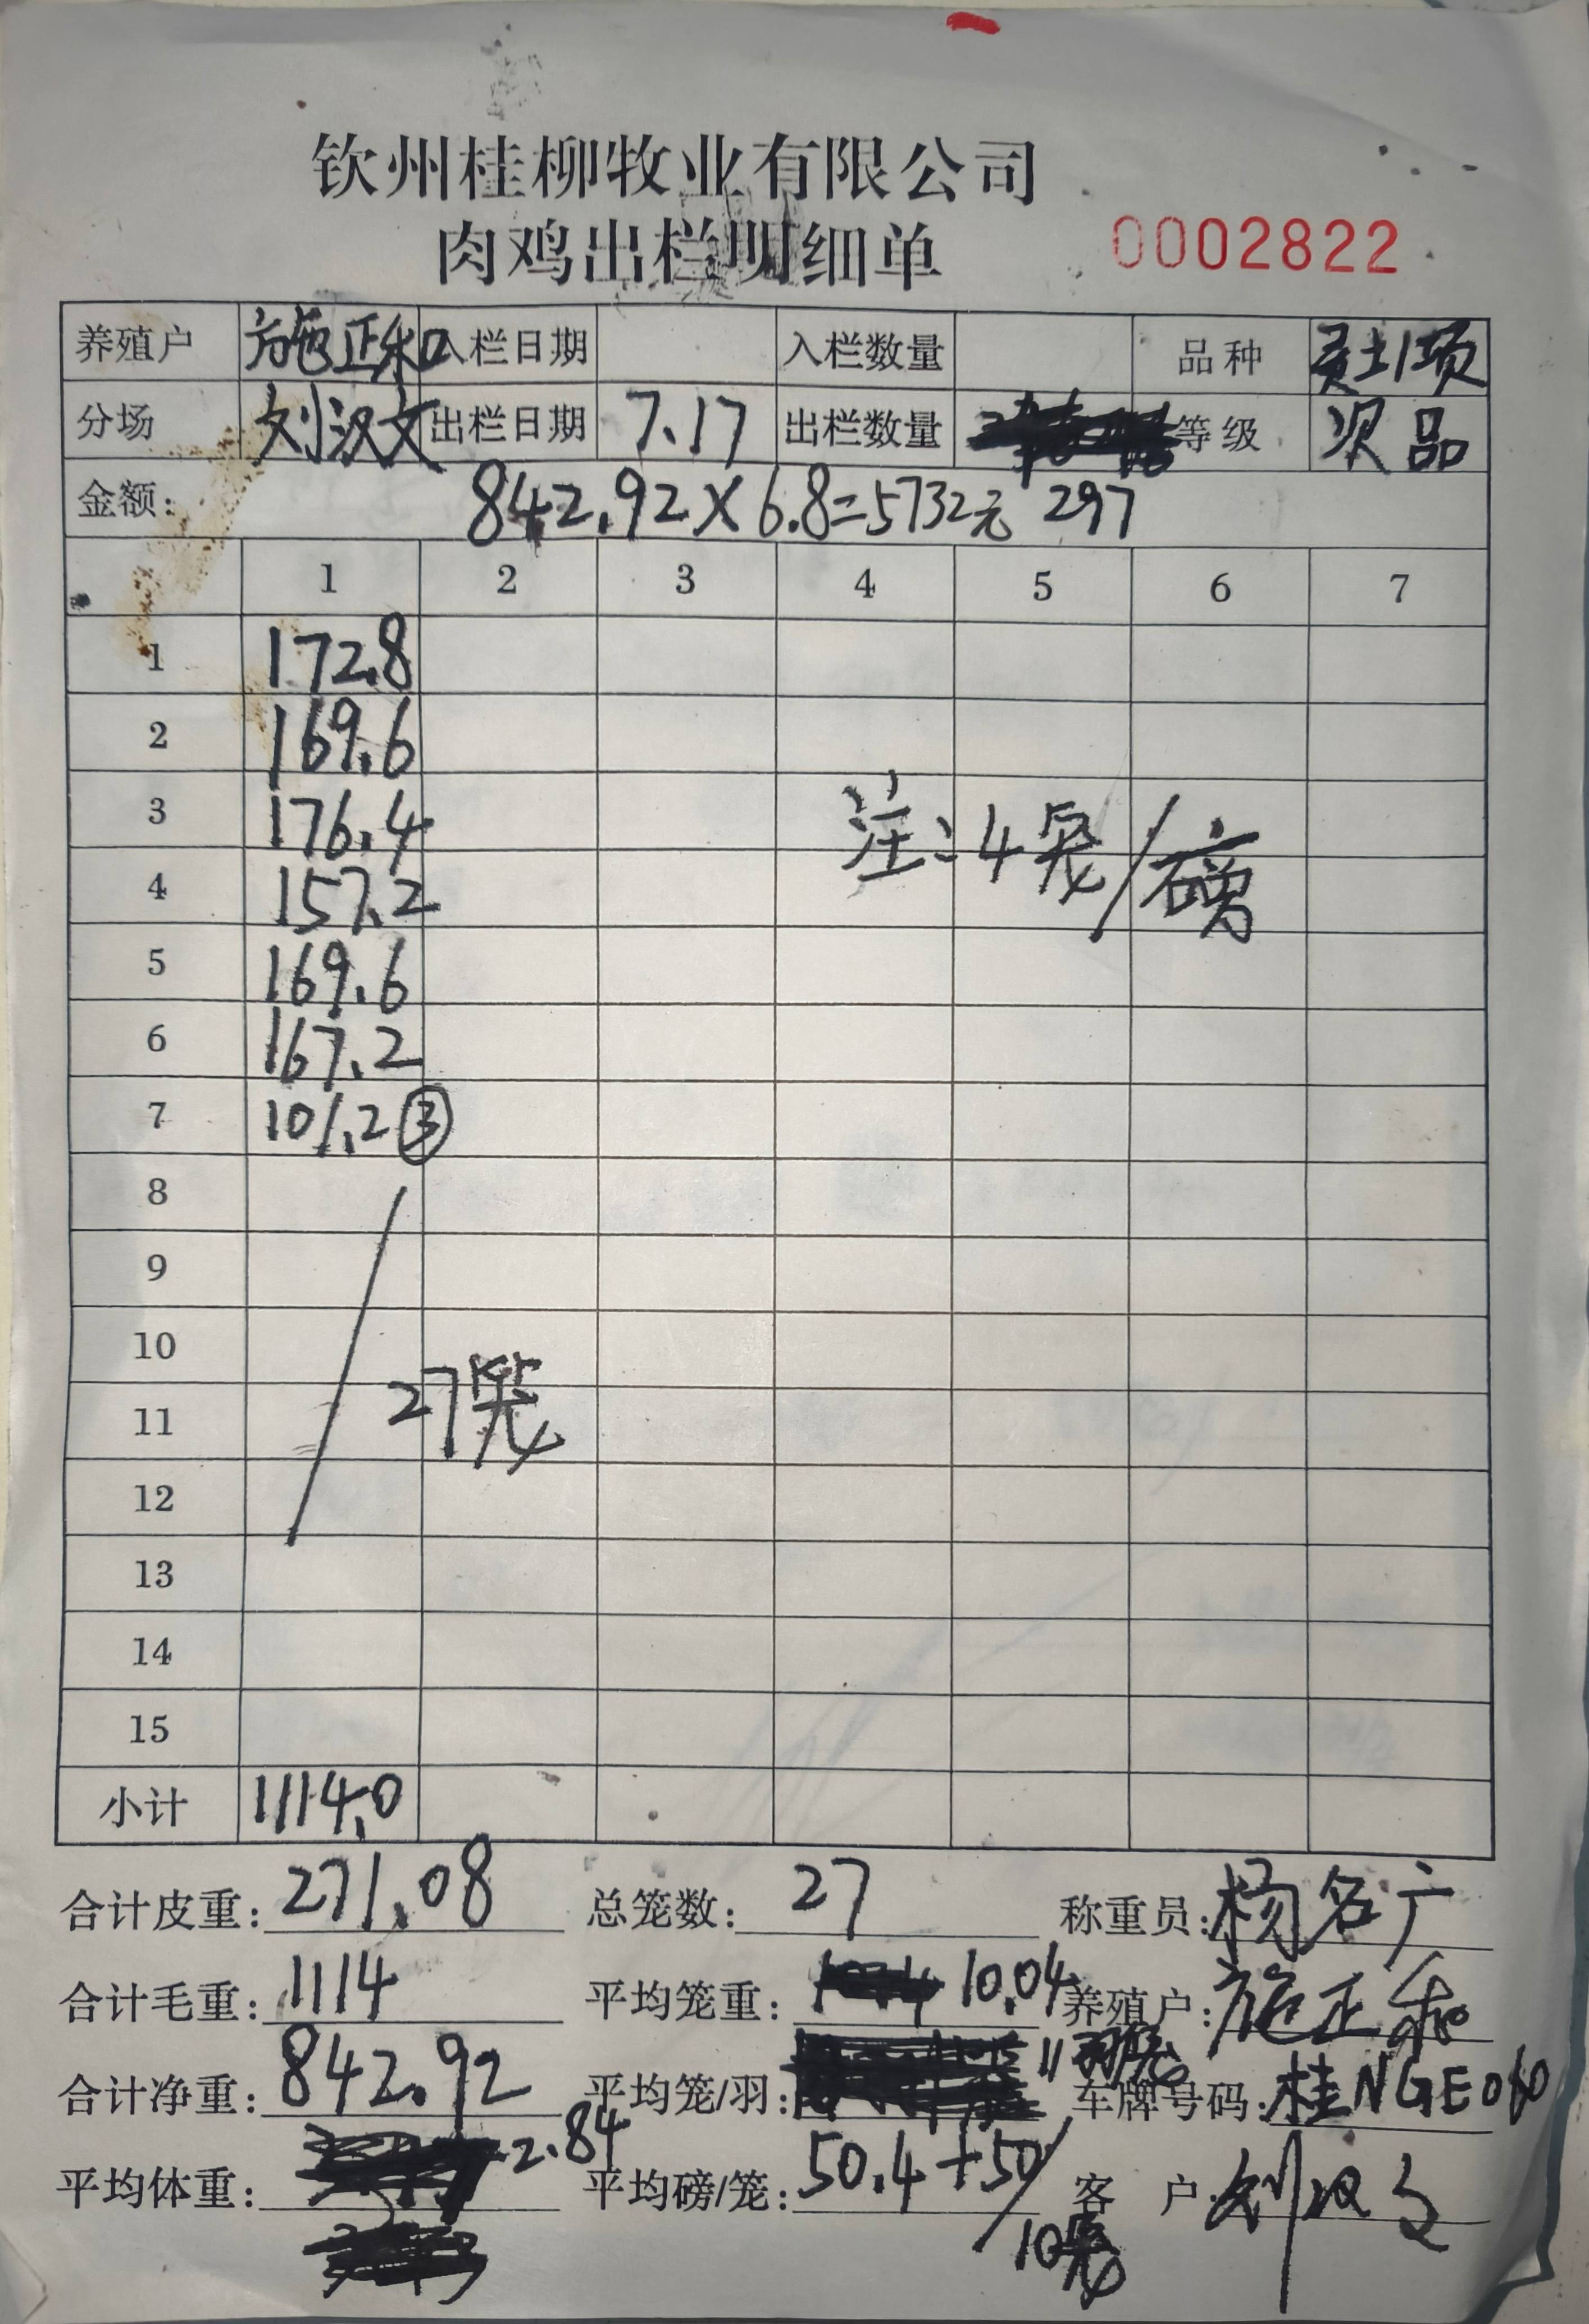 钦州桂柳牧业有限公司
肉鸡出栏明细单 0002822
养殖户 施正和 入栏日期 入栏数量 品种 灵土1项
分场 刘汉文 出栏日期 7.17 出栏数量 等级 次品
金额: 842.92×6.8=5732元 297
1 2 3 4 5 6 7
1 172.8
2 169.6
3 176.4
4 157.2
5 169.6
6 167.2
7 101.2 ③
8
9
10
11
12
13
14
15
注:4笼/磅
27笼
小计 1114.0
合计皮重: 271.08 总笼数: 27 称重员: 杨名广
合计毛重: 1114 平均笼重: 10.04 养殖户: 施正和
合计净重: 842.92 平均笼/羽: 11 车牌号码: 桂NGE060
平均体重: 2.84 平均磅/笼: 50.4+50/10笼 客户: 刘汉文